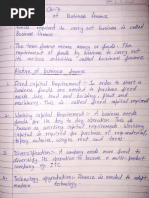 Ch-7
of Business Finance
Funds required to carry out business is called
Business Finance
The term finance means money or funds. The
requirement of funds by business to carry out
its various activities is called business
finance.
Nature of business finance
Fixed capital Requirement - In order to start a
business funds are needed to purchase fixed assets
like land and building, plant and
machinery. This is called fixed capital
requirement.
2. Working Capital Requirement - A business needs
funds for its day to day operation. This is
known as working capital Requirements. Working
capital is required for purchase of raw materials,
to pay salaries, wages, rent and taxes
Diversification - A company needs more funds to
diversify its operation to become a multi-product
company eg. ITC.
Technology upgradation: Finance is needed to adopt
modern technology